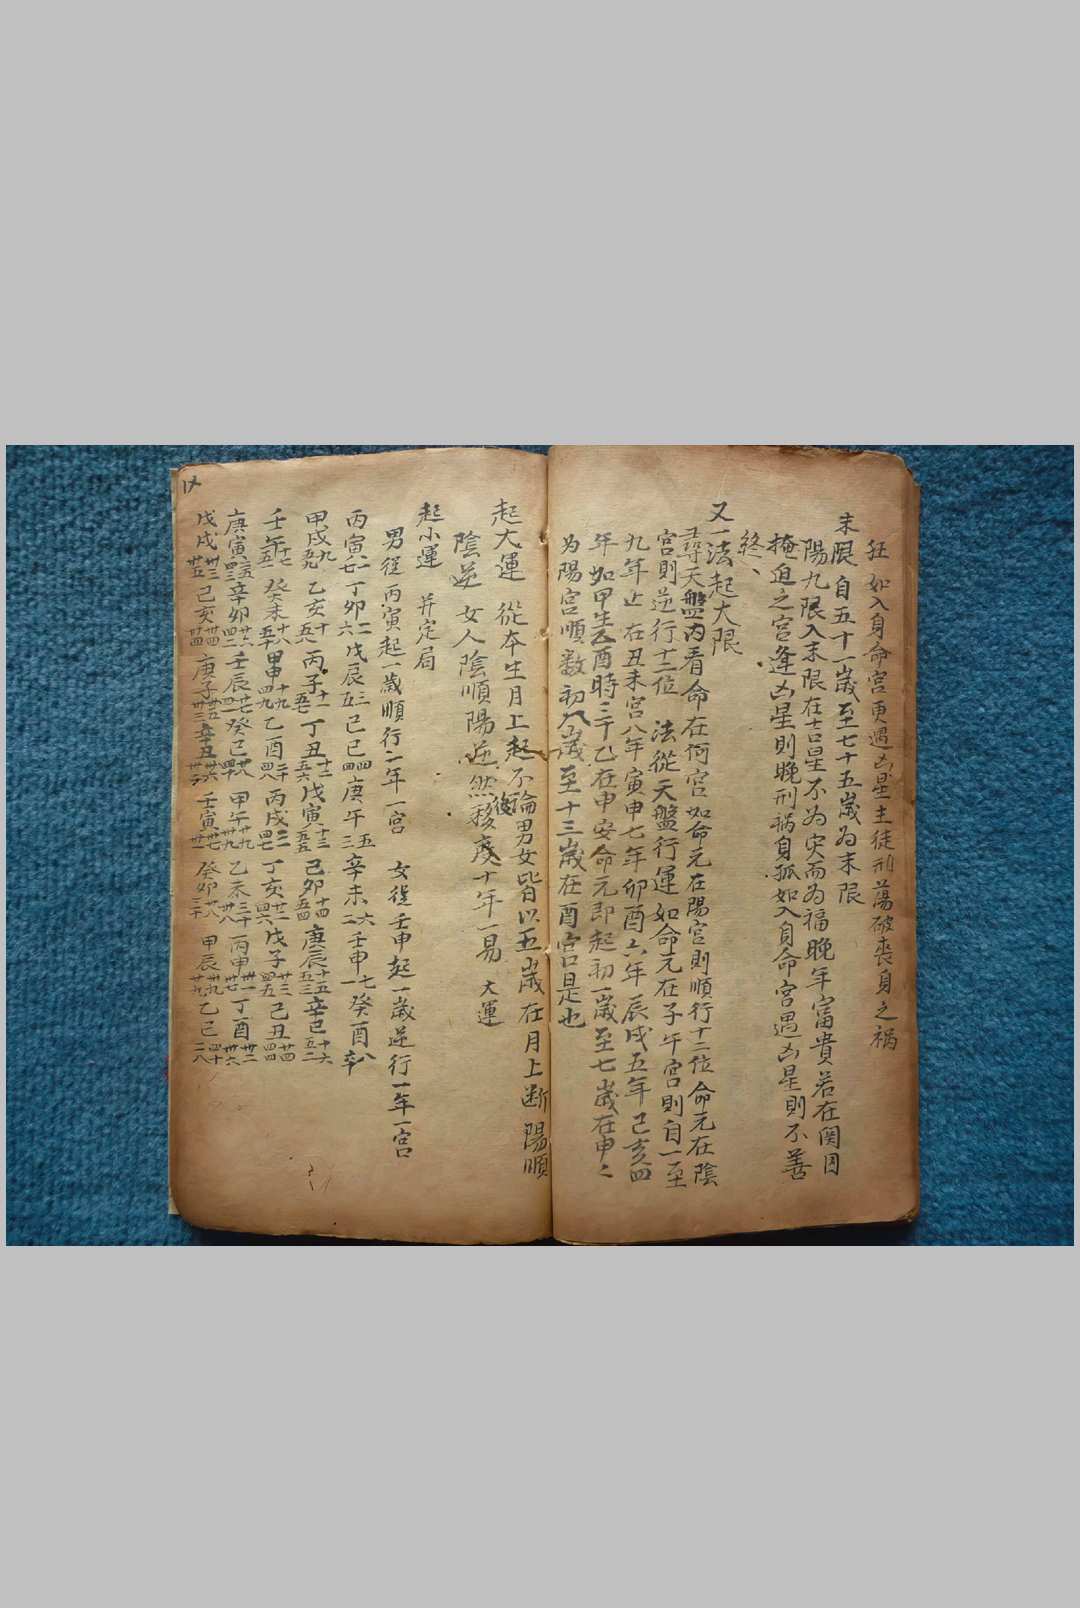 狂如入身命宮更遇凶星主徒刑蕩破喪身之禍
末限自五十一歲至七十五歲为末限
陽九限入末限在吉星不为灾而为福晚年富貴若在関囚
掩迫之宮逢凶星則晚刑禍身孤如入身命宮遇凶星則不善
終、
又一法起大限
尋天盤内看命在何宮如命元在陽宮則順行十二位命元在陰
宮則逆行十二位 法從天盤行運如命元在子午宮則自一至
九年止在丑未宮八年寅申七年卯酉六年辰戌五年己亥四
年如甲生乙酉時三千乙在申安命元即起初一歲至七歲在申
为陽宮順数初八歲至十三歲在酉宮是也
起大運 從本生月上起不論男女皆以五歲在月上断陽順
陰逆 女人陰順陽逆然後移度十年一易 大運
起小運 并定局
男從丙寅起一歲順行一年一宮 女從壬申起一歲逆行一年一宮
丙寅 丁卯二六 戊辰三五 己巳四四 庚午五三 辛未六二 壬申七一 癸酉八
甲戌九 乙亥十五八 丙子十一 丁丑十二五六 戊寅十三五五 己卯十四五四 庚辰十五五三 辛巳十六五二
壬午十七 癸未十八五十 甲申十九四九 乙酉二十四八 丙戌 丁亥廿二四六 戊子廿三四五 己丑廿四四四
庚寅 辛卯廿六四二 壬辰 癸巳廿八四十 甲午廿九卅九 乙未三十卅八 丙申卅一卅七 丁酉卅二卅六
戊戌卅三卅五 己亥卅四 庚子卅五卅三 辛丑卅六 壬寅卅七 癸卯卅八三十 甲辰卅九廿九 乙巳四十二八